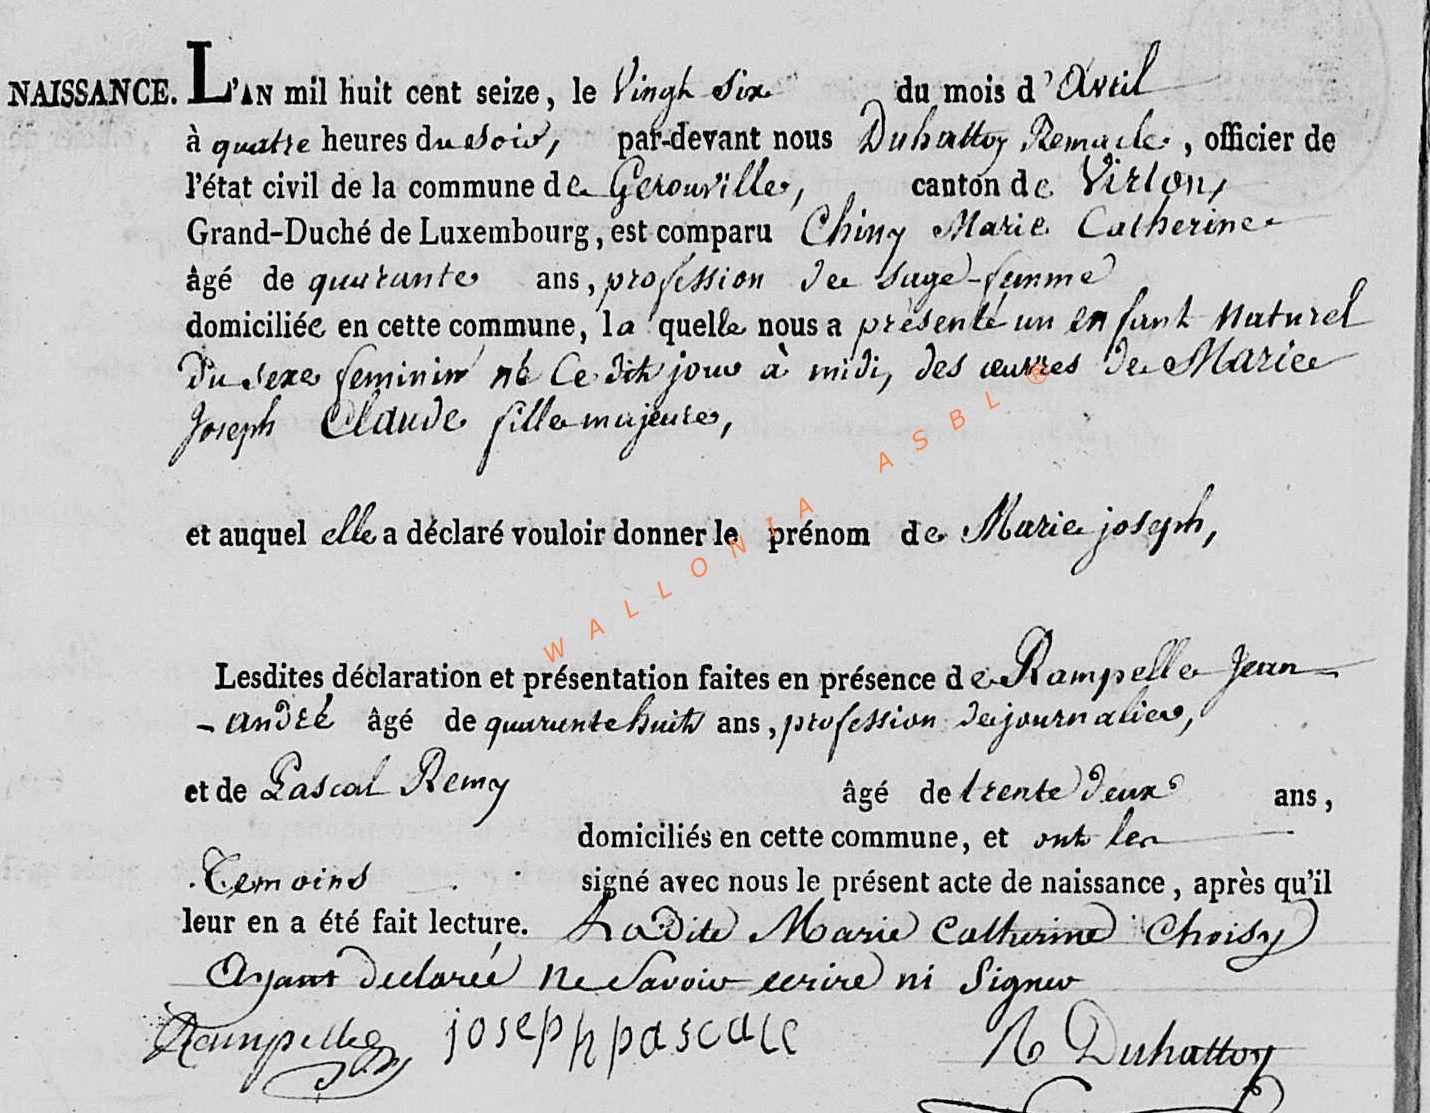 NAISSANCE. L'AN mil huit cent seize, le Vingt Six du mois d'Avril
à quatre heures du soir, par-devant nous Duhattoy Remacle, officier de
l'état civil de la commune de Gerouville, canton de Virton,
Grand-Duché de Luxembourg, est comparu Chiny Marie Catherine
âgé de quarante ans, profession de sage-femme
domiciliée en cette commune, la quelle nous a présenté un enfant naturel
du sexe feminin né ce dit jour à midi, des œuvres de Marie
Joseph Claude fille majeure,
et auquel elle a déclaré vouloir donner le prénom de Marie joseph,
Lesdites déclaration et présentation faites en présence de Rampelle Jean
-andré âgé de quarante huit ans, profession de journalier,
et de Pascal Remy âgé de trente deux ans,
domiciliés en cette commune, et ont les
Temoins signé avec nous le présent acte de naissance, après qu'il
leur en a été fait lecture. La dite Marie Catherine Choisy
Ayant declareé ne savoir ecrire ni signer
Rampelle joseph pascale R Duhattoy
WALLONIA ASBL ®